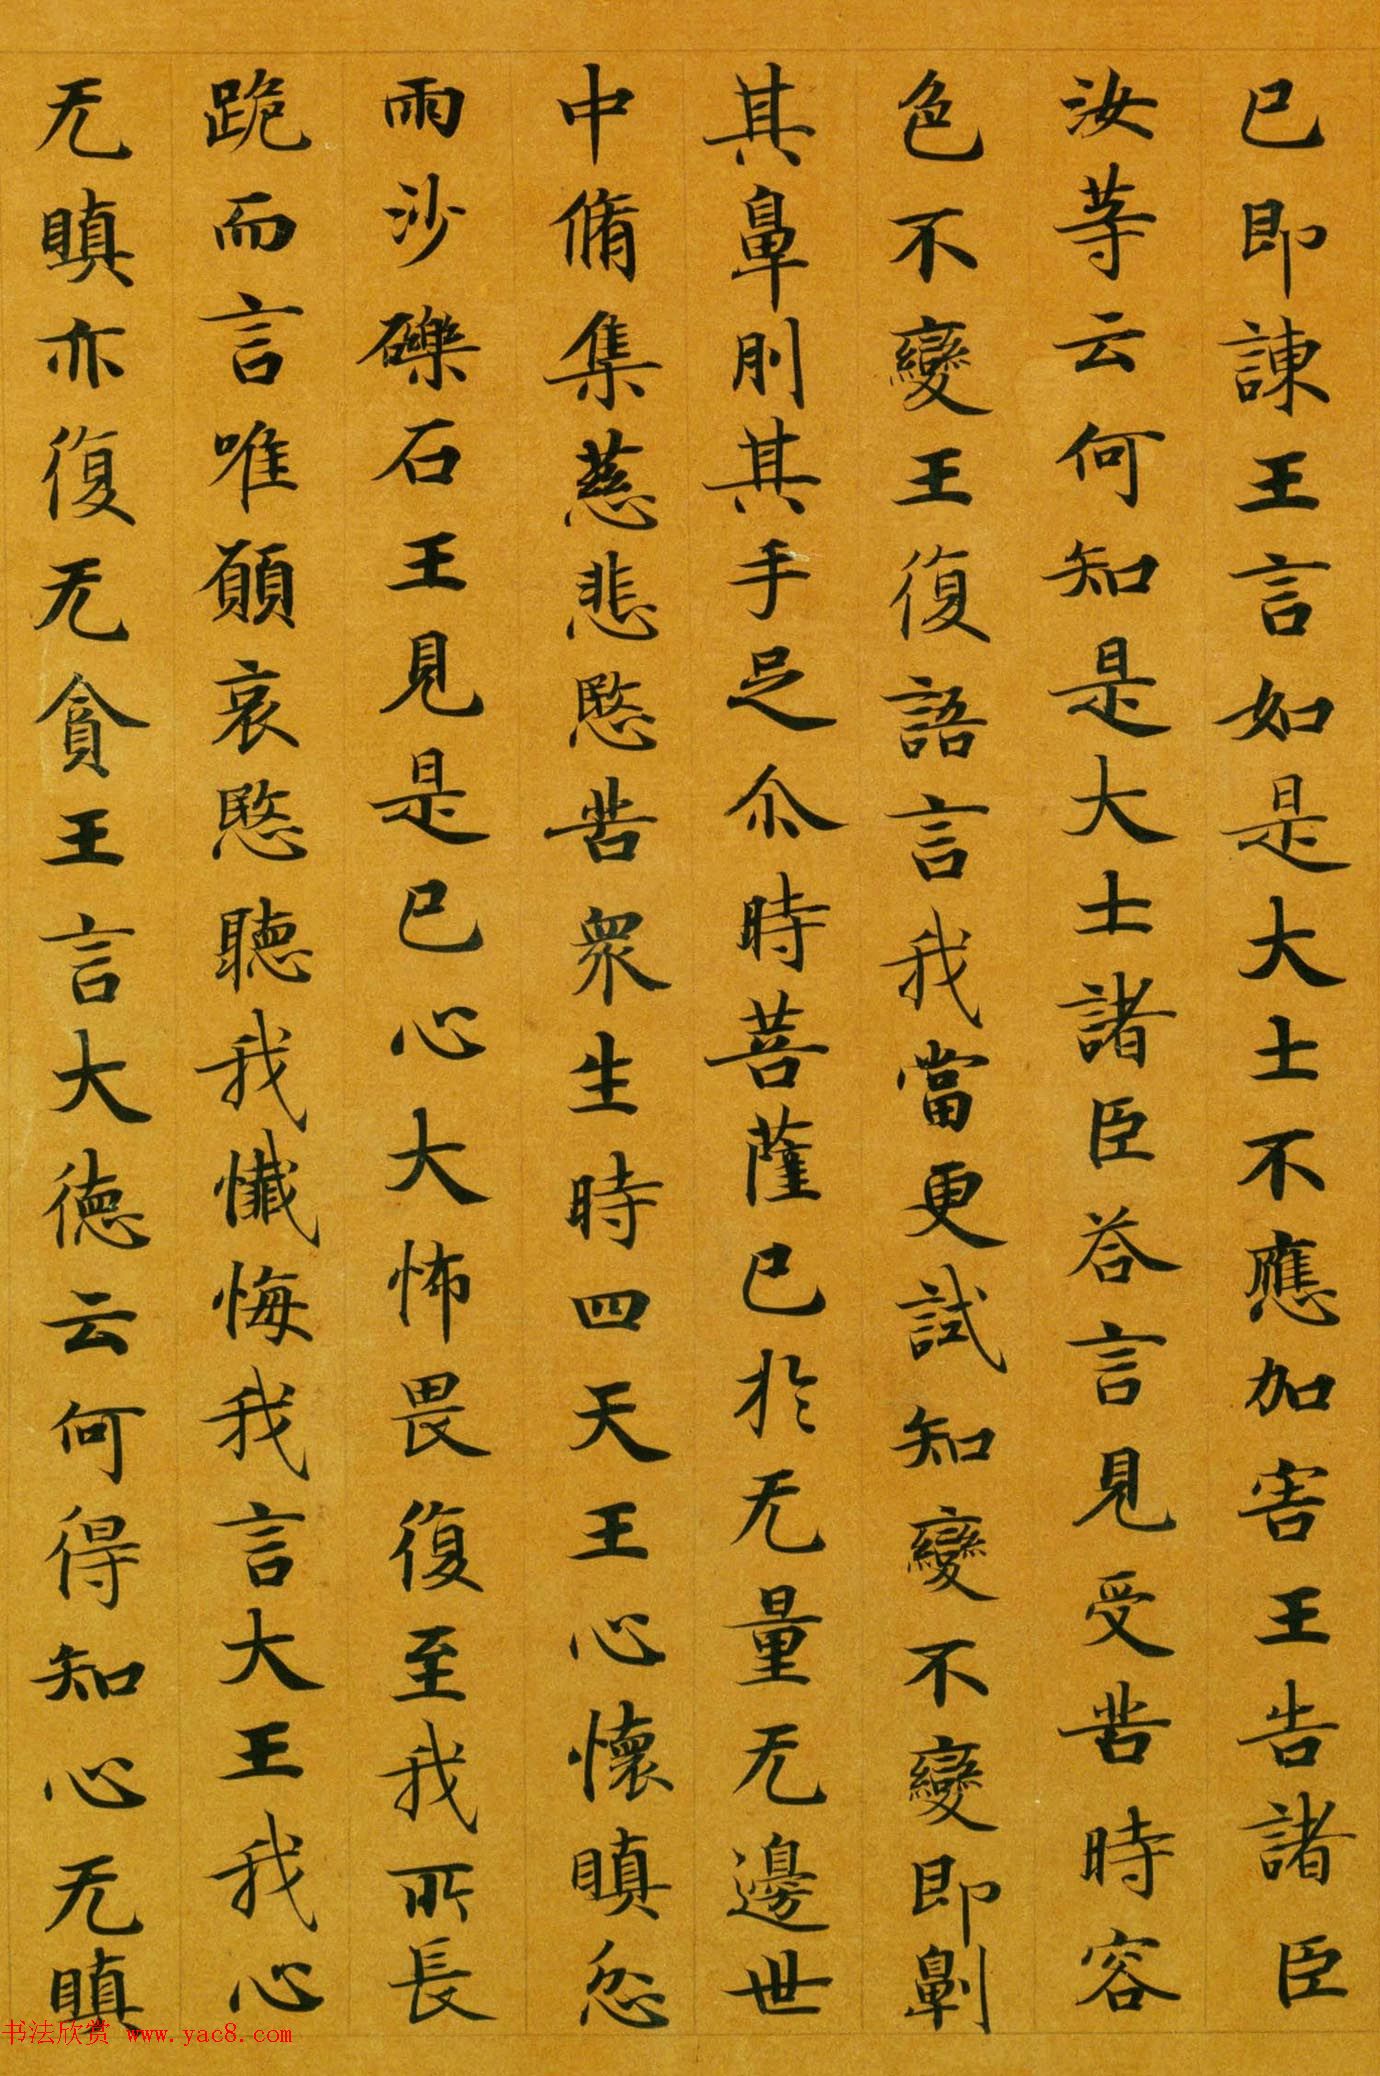 已即諫王言如是大士不應加害王告諸臣
汝等云何知是大士諸臣荅言見受苦時容
色不變王復語言我當更試知變不變即劓
其鼻刖其手足尒時菩薩已於无量无邊世
中脩集慈悲愍苦衆生時四天王心懷瞋忿
雨沙礫石王見是已心大怖畏復至我所長
跪而言唯願哀愍聽我懺悔我言大王我心
无瞋亦復无貪王言大德云何得知心无瞋
书法欣赏 www.yac8.com